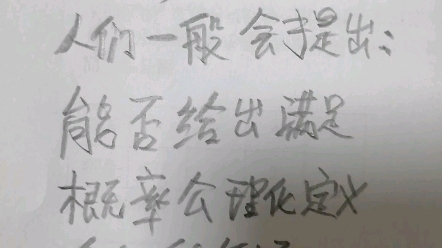 人们一般会提出:
能否给出满足
概率公理化定义